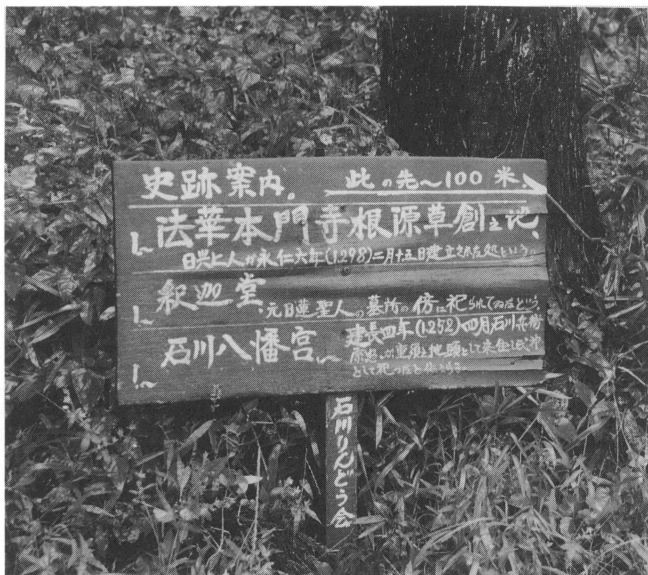 史跡案内。 此の先〜100米、
1、法華本門寺根源草創之地、
日興上人が永仁六年(1298)二月十五日建立された処という。
1、釈迦堂、元日蓮聖人の墓所の傍に祀られてゐたという
1、石川八幡宮、建長四年(1252)四月石川兵衛
が重須の地頭として来住し
として祀ったと伝
石川りんどう会